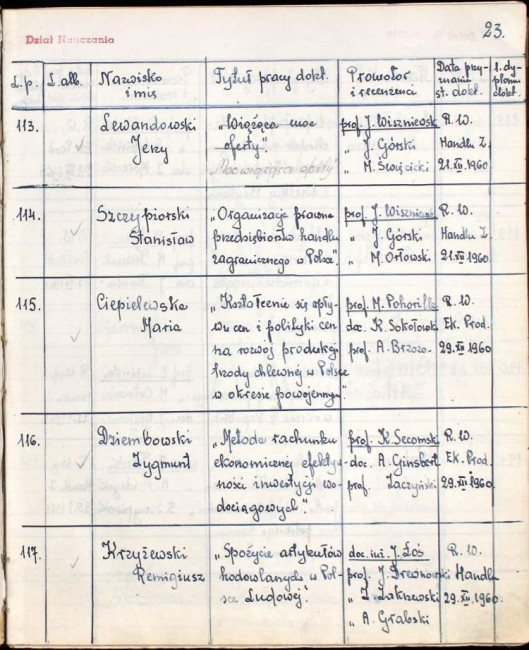 23.
Dział Nauczania
L.p.
L.alb.
Nazwisko
i imię
Tytuł pracy dokt.
Promotor
i recenzenci
Data przy-
znania
st. dokt.
L. dypl.
dokt.
113.
Lewandowski
Jerzy
„Wiążąca moc
oferty”
„Moc wiążąca oferty”
prof. J. Wiszniewski
„ J. Górski
„ M. Święcicki
R. W.
Handlu Z.
21.XII.1960.
114.
Szczypiorski
Stanisław
„Organizacja prawna
przedsiębiorstw handlu
zagranicznego w Polsce”.
prof. J. Wiszniewski
„ J. Górski
„ M. Orłowski
R. W.
Handlu Z.
21.XII.1960.
115.
Ciepielewska
Maria
„Kształcenie się opły-
wu cen i polityki cen
na rozwój produkcji
trzody chlewnej w Polsce
w okresie powojennym”
prof. M. Pohorille
doc. K. Sokołowski
prof. A. Brzoza
R. W.
Ek. Prod.
29.XII.1960
116.
Dziembowski
Zygmunt
„Metoda rachunku
ekonomicznej efektyw-
ności inwestycji wo-
dociągowych”.
prof. K. Secomski
doc. A. Ginsbert
prof. Zaczyński
R. W.
Ek. Prod.
29.XII.1960.
117.
Krzyżewski
Remigiusz
„Spożycie artykułów
hodowlanych w Pol-
sce Ludowej”.
doc. inż. J. Łoś
prof. J. Drewnowski
„ Z. Zakrzewski
„ A. Grabski
R. W.
Handlu
29.XII.1960.